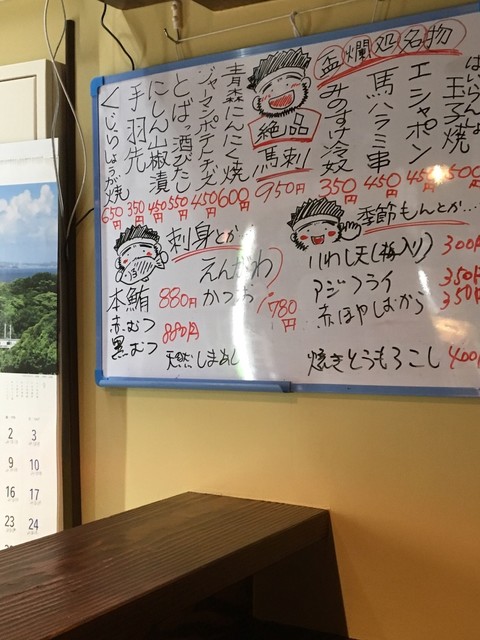 盃爛処名物
ばいらんの玉子焼 500
エシャポン 450
馬ハラミ串 450
みのすけ冷奴 350
絶品
馬刺
950円
青森にんにく焼 600
ジャーマンポテトチーズ 450
とばっ酒びたし 550
にしん山椒漬 450
手羽先 350
くじらしょうが焼 650円
刺身とか
えんがわ
かつお
780円
本鮪 880円
赤むつ
黒むつ
880円
天然しまあじ
季節もんとか…
いわし天(梅入り) 300円
アジフライ 350円
赤ほやしおから 350円
焼きとうもろこし 400円
2 3
9 10
16 17
23 24